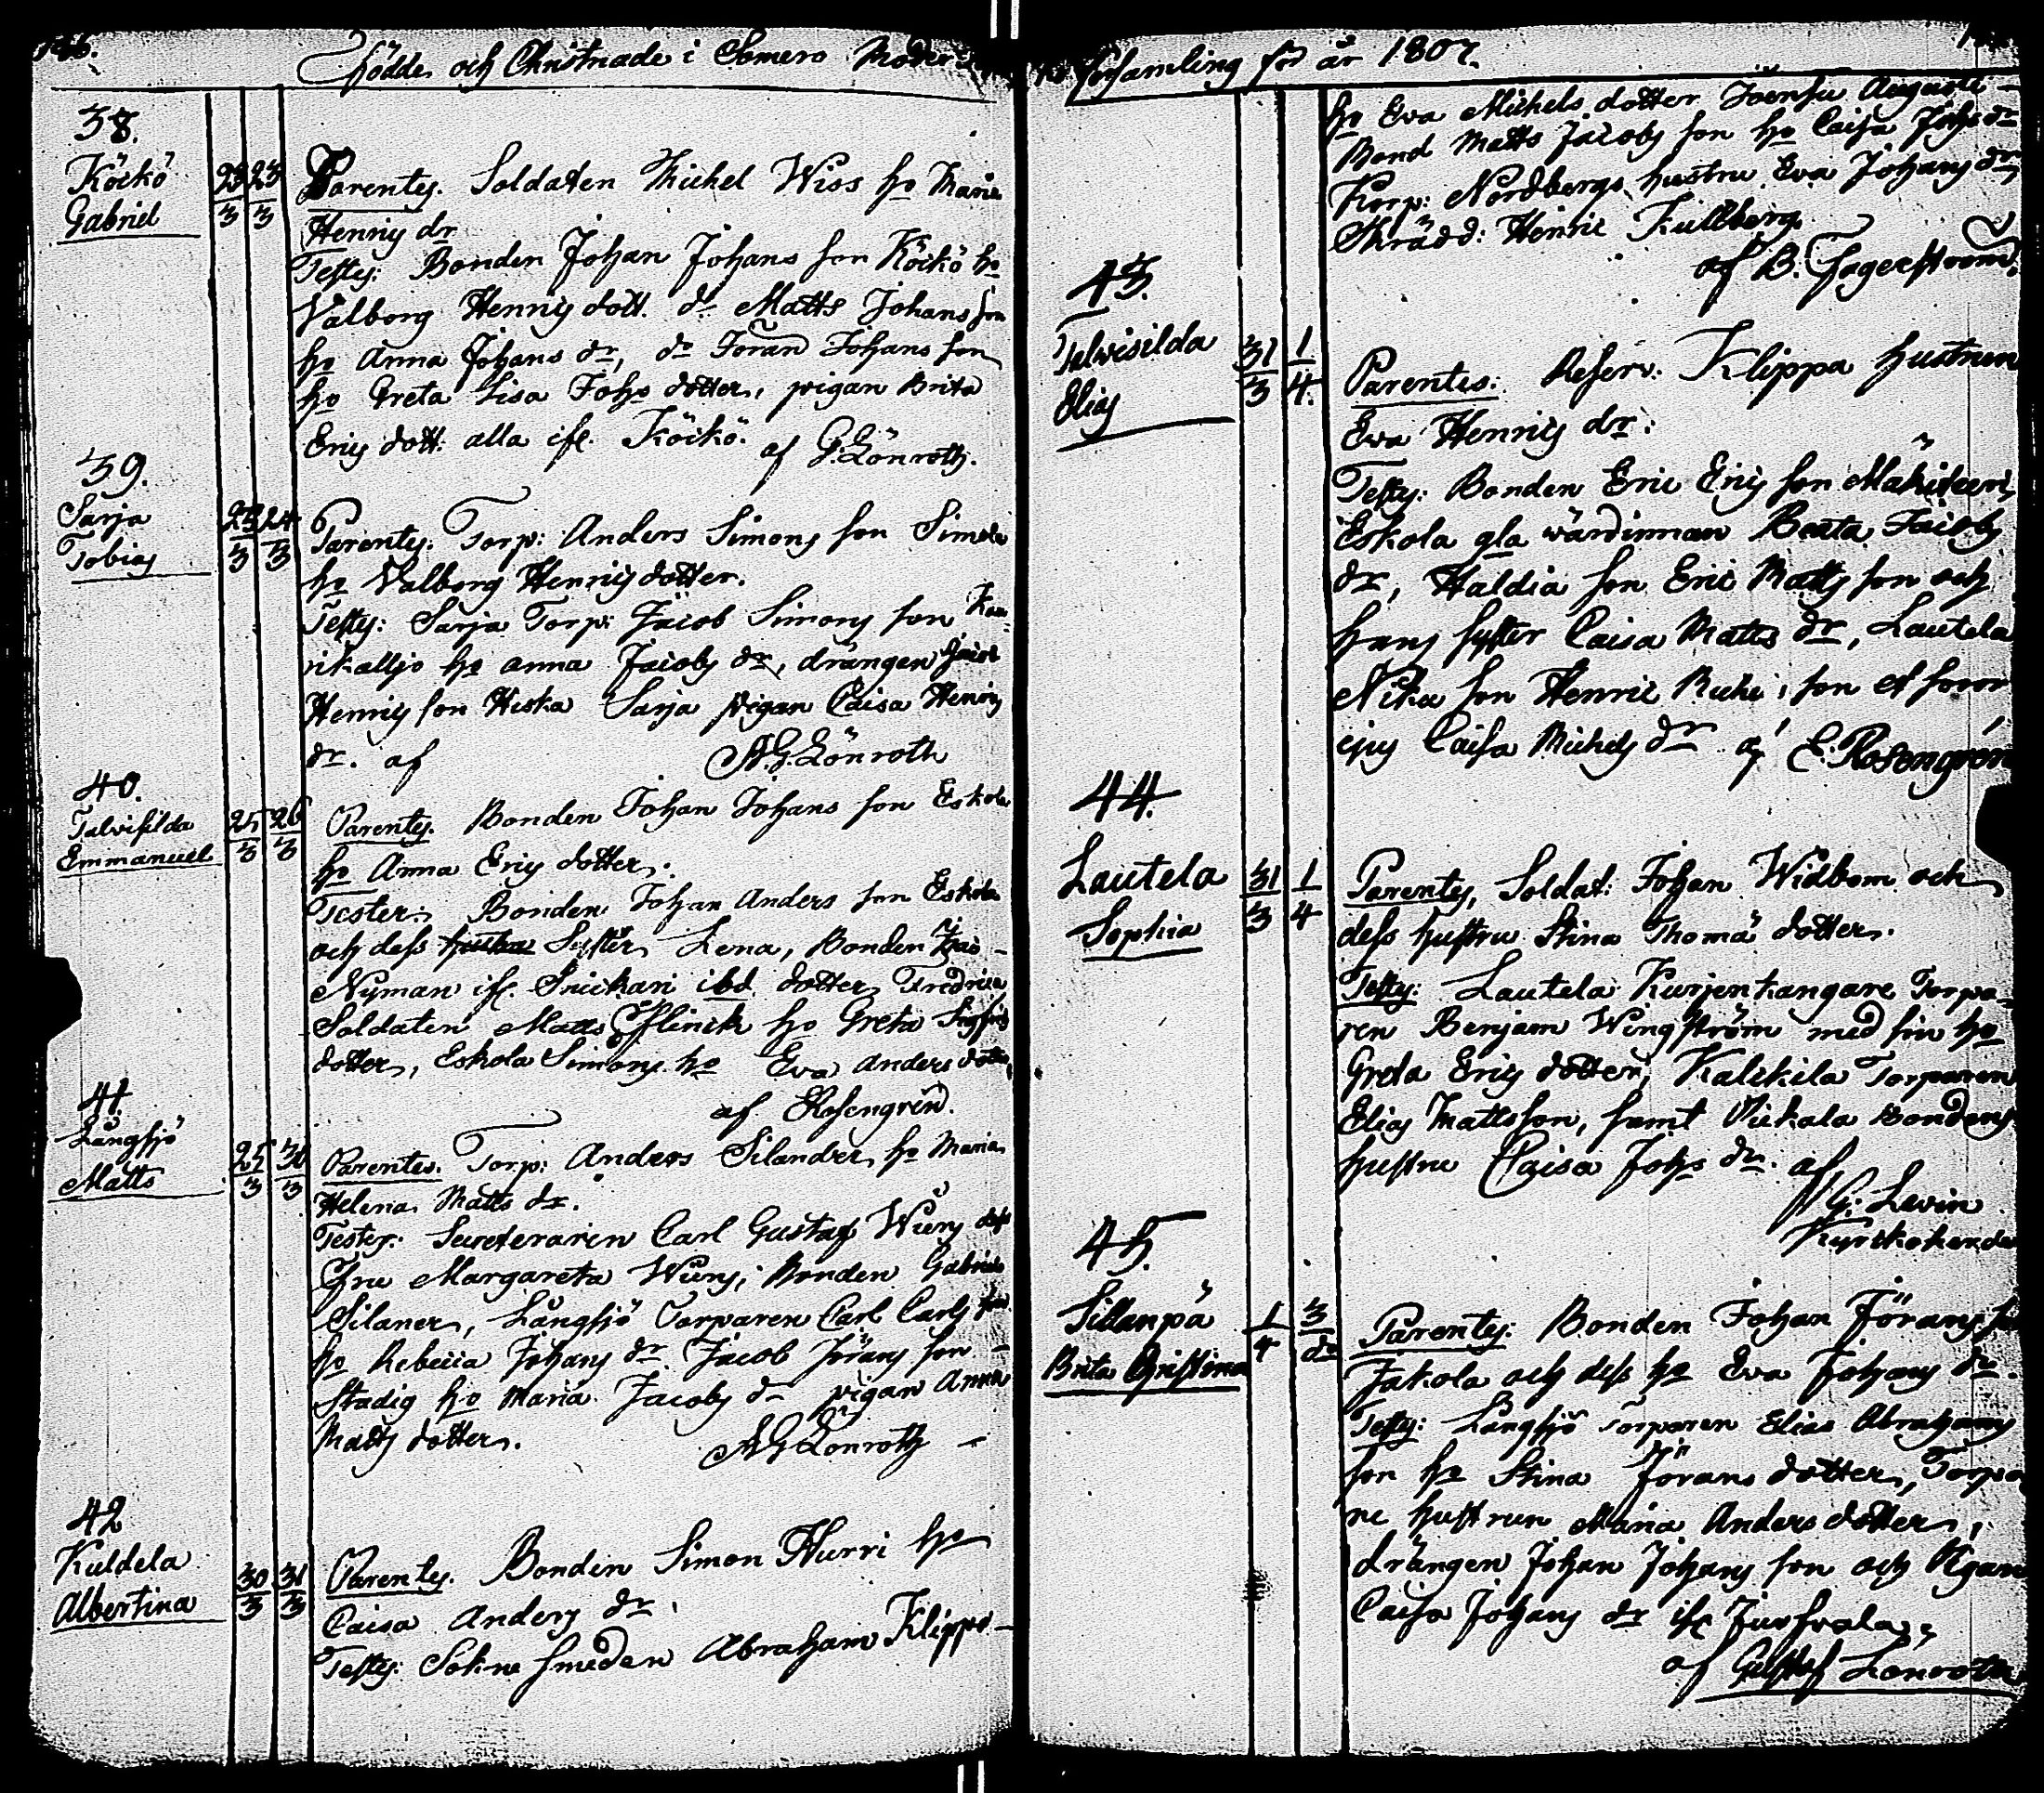 Födde och Christnade i Somero Moder
38.
Köckö
Gabriel
23/3 23/3
Parentes. Soldaten Michel Wiss ho Maria
Henrics dr
Testes: Bonden Johan Johans son Köckö ho
Valborg Henrics dott. do Matts Johans son
ho Anna Johans dr, do Jöran Johans son
ho Greta Lisa Johs dotter, pigan Brita
Erics dott. alla ifr. Köckö. af G. Lönroth.
39.
Sarja
Tobias
23/3 24/3
Parentes. Torp: Anders Simons son Simola
ho Valborg Henrics dotter.
Testes: Sarja Torp: Jacob Simons son
ho Anna Jacobs dr, drängen
Henrics son Hiska Sarja pigan Caisa Henrics
dr. af A. G. Lönroth
40.
Talvisilda
Emmanuel
25/3 26/3
Parentes. Bonden Johan Johans son Eskola
ho Anna Erics dotter.
Tester: Bonden Johan Anders son Eskola
och dess Syster Lena, Bonden
Nyman ifr. Snickari ibd dotter Fredrica
Soldaten Matts Flinck ho Greta Sigfrids
dotter, Eskola Simons ho Eva Anders dotter,
af Rosengren.
41.
Långsjö
Matts
25/3 30/3
Parentes. Torp: Anders Silander ho Maria
Helena Matts dr.
Testes: Secreteraren Carl Gustaf dess
Fru Margareta Bonden Gabriel
Silaner, Långsjö Torparen Carl Carls son
ho Rebecca Johans dr Jacob Jörans son
Stadig ho Maria Jacobs dr pigan Anna
Matts dotter. A G Lönroth
42
Kuldela
Albertina
30/3 31/3
Parentes. Bonden Simon Hurri ho
Caisa Anders dr.
Testes: Sokne smeden Abraham Klippo
församling för år 1807.
ho Eva Michels dotter Joensu Augusti
Bond Matts Jacobs son ho Caisa Johs dr
Korp: Nordbergs hustru Eva Johans dr
Skrädd: Henric Kullberg.
af B. Fagerström.
43.
Talvisilda
Elias
31/3 1/4.
Parentes: Reserv: Klippa hustrun
Eva Henrics dr:
Testes: Bonden Eric Erics son
Eskola gla wärdinnan Beata Jacobs
dr, Haldia son Eric Matts son och
hans syster Caisa Matts dr, Lautela
son Henric son et soror
ejus Caisa Michels dr af E. Rosengren
44.
Lautela
Sophia
31/3 1/4
Parentes, Soldat: Johan Widbom och
dess hustru Stina Thomä dotter.
Testes: Lautela Kurjenkangare Torpa-
ren Benjam Wingström med sin ho
Greta Erics dotter, Kalikila Torparen
Elias Mattsson, samt Bondens
hustru Caisa Johs dr. af
G: Levin
45.
Sillanpä
Brita Christina
1/4 3/do
Parentes: Bonden Johan Jörans
Jakola och dess ho Eva Johans dr.
Testes: Långsjö Torparen Elias Abrahams
son ho Stina Jörans dotter, Torpa
re hustrun Maria Anders dotter,
drängen Johan Johans son och Pigan
Caisa Johans dr ifr
af Gustaf Lönroth